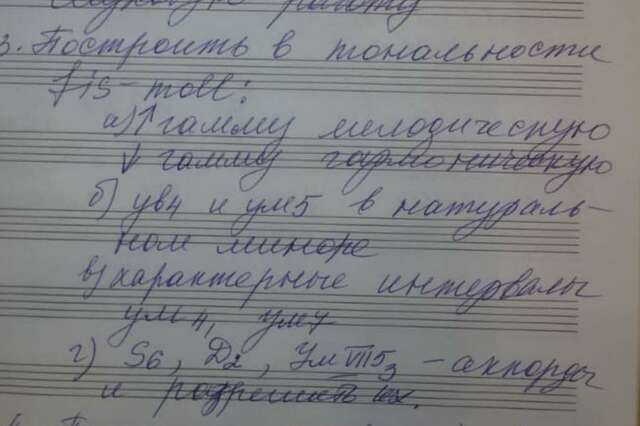 слуховую работу
3. Построить в тональности
fis-moll:
а)↑ гамму мелодическую
↓ гамму гармоническую
б) ув4 и ум5 в натураль-
ном миноре
в) характерные интервалы
ум4, ум7
г) S6, D2, УмVII53 – аккорды
и разрешить их.